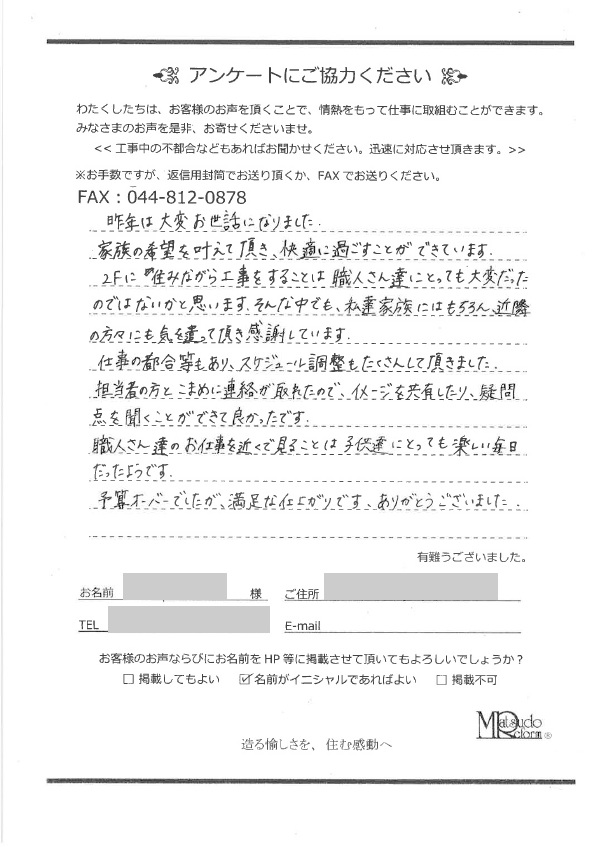 アンケートにご協力ください
わたくしたちは、お客様のお声を頂くことで、情熱をもって仕事に取組むことができます。
みなさまのお声を是非、お寄せくださいませ。
<< 工事中の不都合などもあればお聞かせください。迅速に対応させ頂きます。>>
※お手数ですが、返信用封筒でお送り頂くか、FAXでお送りください。
FAX：044-812-0878
昨年は大変お世話になりました.
家族の希望を叶えて頂き、快適に過ごすことができています.
2Fに住みながら工事をすることは職人さん達にとっても大変だった
のではないかと思います.そんな中でも、私達家族にはもちろん、近隣
の方々にも気を遣って頂き感謝しています.
仕事の都合等もあり、スケジュール調整もたくさんして頂きました.
担当者の方とこまめに連絡が取れたので、イメージを共有したり、疑問
点を聞くことができて良かったです.
職人さん達のお仕事を近くで見ることは子供達にとっても楽しい毎日
だったようです.
予算オーバーでしたが、満足な仕上がりです、ありがとうございました.
有難うございました。
お名前 様 ご住所
TEL E-mail
お客様のお声ならびにお名前をHP等に掲載させて頂いてもよろしいでしょうか？
□ 掲載してもよい ☑ 名前がイニシャルであればよい □ 掲載不可
Matsudo
Reform ®
造る愉しさを、住む感動へ